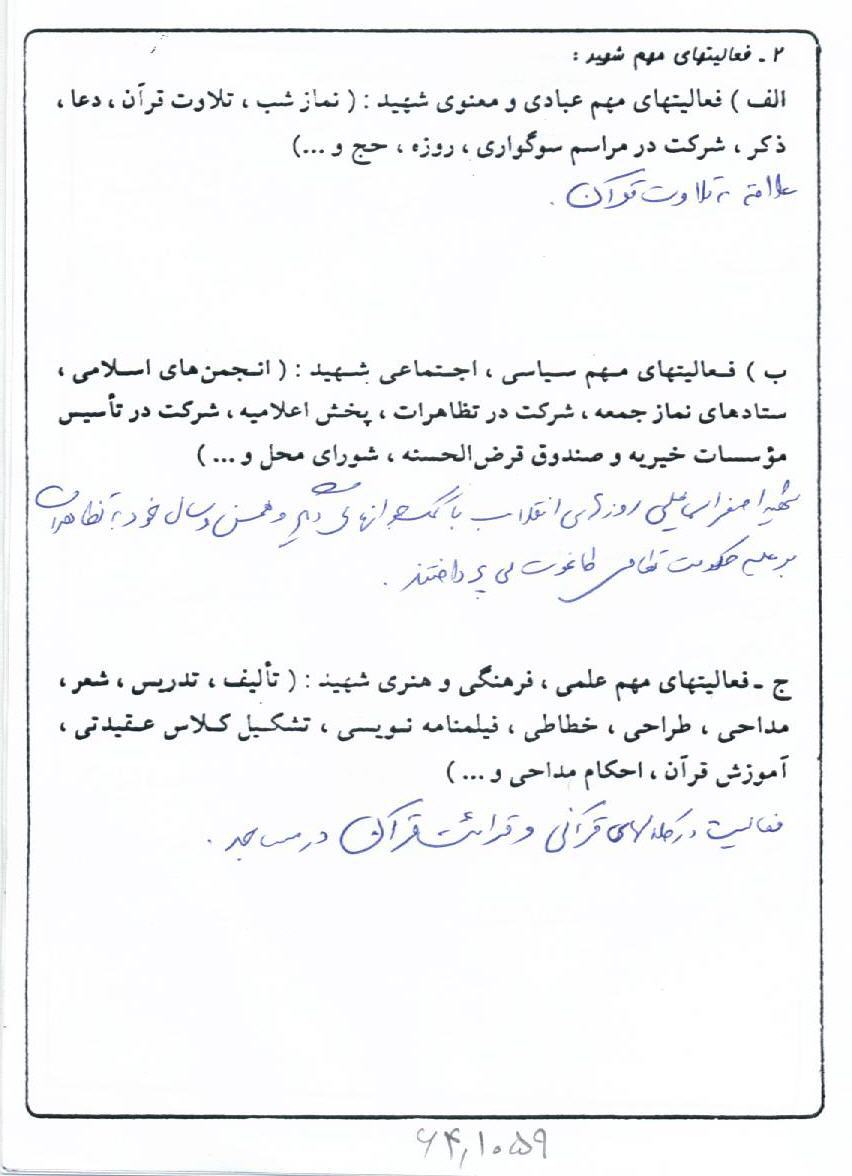 ۲ ـ فعالیتهای مهم شهید :
الف ) فعالیتهای مهم عبادی و معنوی شهید : ( نماز شب ، تلاوت قرآن ، دعا ،
ذکر ، شرکت در مراسم سوگواری ، روزه ، حج و ...)
علاقه به تلاوت قرآن .
ب ) فعالیتهای مهم سیاسی ، اجتماعی شهید : ( انجمن‌های اسلامی ،
ستادهای نماز جمعه ، شرکت در تظاهرات ، پخش اعلامیه ، شرکت در تأسیس
مؤسسات خیریه و صندوق قرض‌الحسنه ، شورای محل و ... )
شهید اصغر اسماعیلی روزهای انقلاب با کمک جوانهای دیگر و همسن و سال خود به تظاهرات
بر علیه حکومت نظامی طاغوت می پرداختند .
ج ـ فعالیتهای مهم علمی ، فرهنگی و هنری شهید : ( تألیف ، تدریس ، شعر ،
مداحی ، طراحی ، خطاطی ، فیلمنامه نویسی ، تشکیل کلاس عقیدتی ،
آموزش قرآن ، احکام مداحی و ... )
فعالیت در کلاسهای قرآنی و قرائت قرآن در مسجد .
۶۴,۱۰۵۹